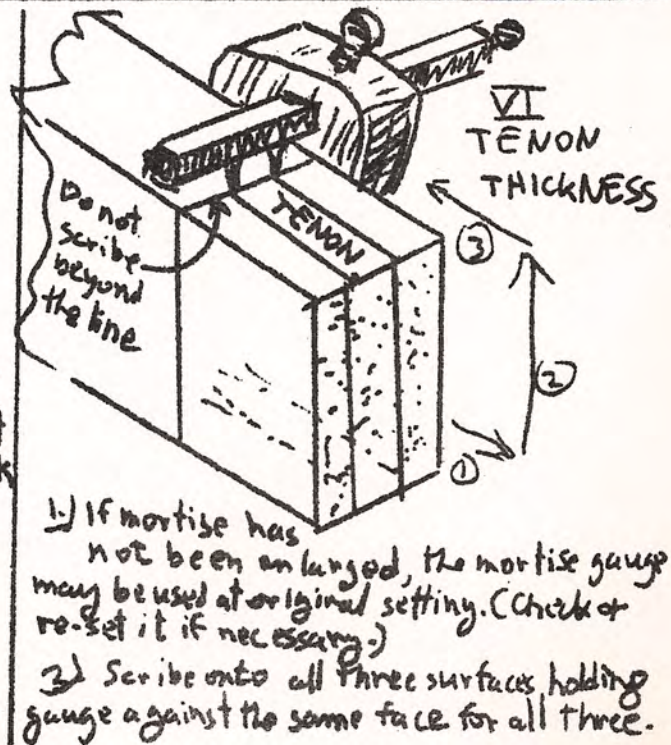 VI
TENON
THICKNESS
Do not
scribe
beyond
the line
TENON
③
②
①
1.) If mortise has
not been enlarged, the mortise gauge
may be used at original setting. (Check or
re-set it if necessary.)
2) Scribe onto all three surfaces, holding
gauge against the same face for all three.